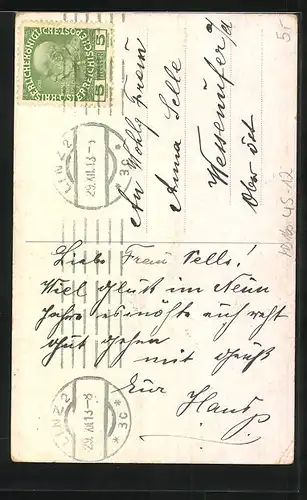 KAISERLICHE KÖNIGLICHE
ÖSTERREICHISCHE POST
5 HELLER 5
LINZ 2
29. XII. 13 - 8
* 3C *
An Wohlg. Frau
Anna Selle
Wesenufer a/d
Ober öst
Liebe Frau Selle!
Viel Glück im Neun
Jahre es möchte auch recht
Gut gehen
mit Gruß
Eur Hans
LINZ 2
29. XII. 13 - 8
* 3C *